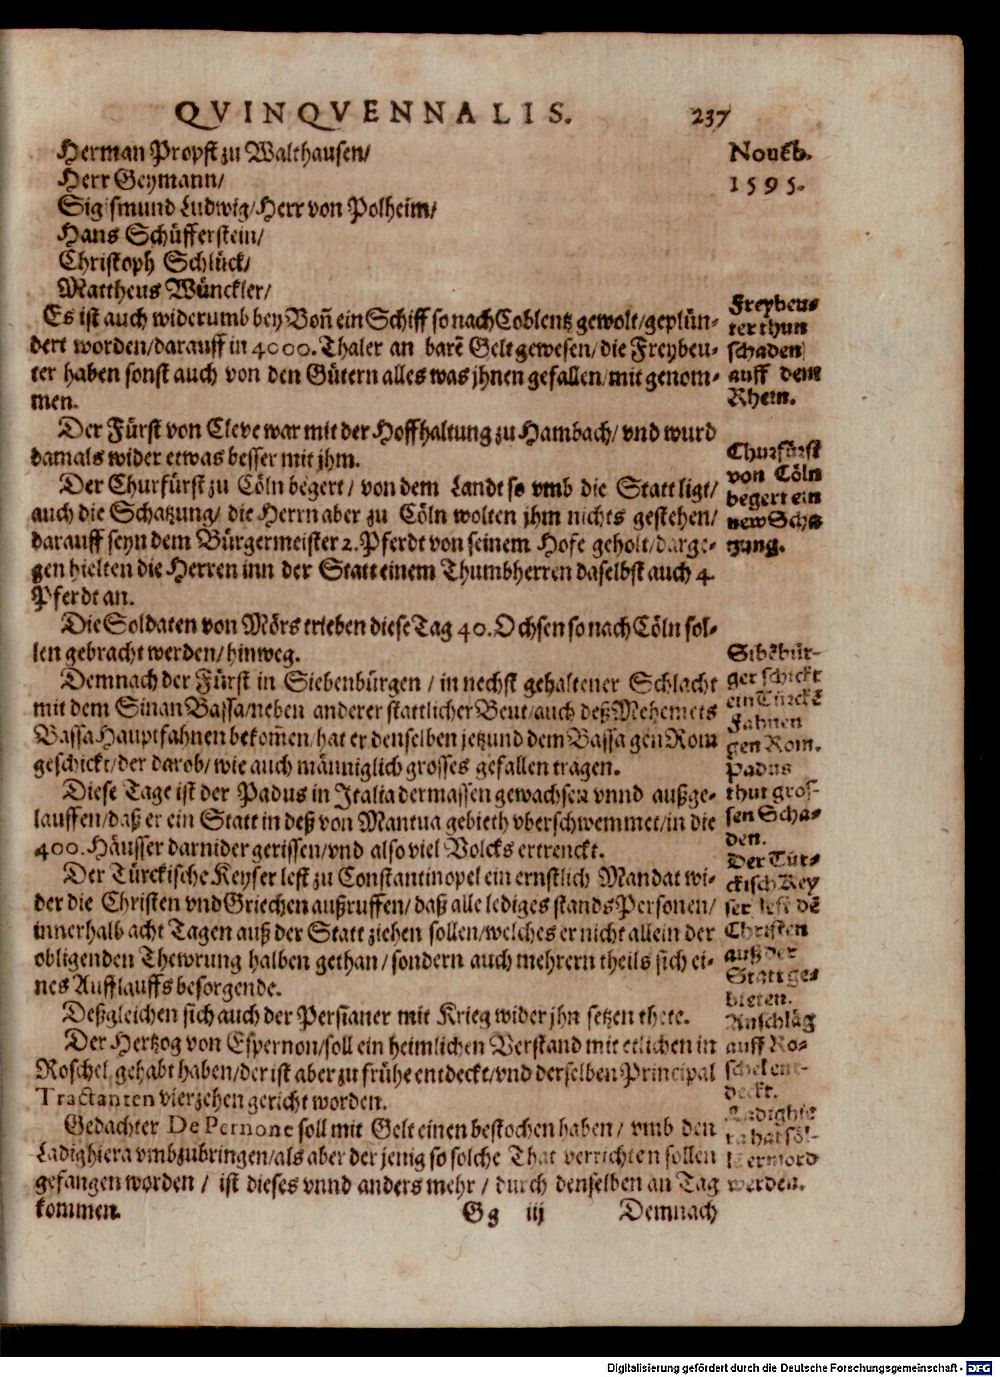 QVINQVENNALIS. 237
Herman Propst zu Walthausen/
Herr Geymann/
Sigismund Ludwig/Herr von Polheim/
Hans Schüfferstein/
Christoph Schlück/
Mattheus Wünckler/
Es ist auch widerumb bey Boñ ein Schiff so nach Coblentz gewolt/geplün-
dert worden/darauff in 4000. Thaler an barẽ Gelt gewesen/die Freybeu-
ter haben sonst auch von den Gütern alles was jhnen gefallen/mit genom-
men.
Der Fürst von Cleve war mit der Hoffhaltung zu Hambach/ vnd wurd
damals wider etwas besser mit jhm.
Der Churfürst zu Cöln begert/ von dem Landt so vmb die Statt ligt/
auch die Schatzung/ die Herrn aber zu Cöln wolten jhm nichts gestehen/
darauff seyn dem Bürgermeister 2. Pferdt von seinem Hofe geholt/darge-
gen hielten die Herren inn der Statt einem Thumbherren daselbst auch 4.
Pferdt an.
Die Soldaten von Mörs trieben diese Tag 40. Ochsen so nach Cöln sol-
len gebracht werden/hinweg.
Demnach der Fürst in Siebenbürgen / in nechst gehaltener Schlacht
mit dem Sinan Bassa/neben anderer stattlicher Beut/auch deß Mehemets
Bassa Hauptfahnen bekom̃en/hat er denselben jetzund dem Bassa gen Rom
geschickt/der darob/wie auch männiglich grosses gefallen tragen.
Diese Tage ist der Padus in Italia dermassen gewachsen vnnd außge-
lauffen/daß er ein Statt in deß von Mantua gebieth vberschwemmet/in die
400. Häusser darnider gerissen/vnd also viel Volcks ertrenckt.
Der Türckische Keyser lest zu Constantinopel ein ernstlich Mandat wi-
der die Christen vnd Griechen außruffen/daß alle lediges stands Personen/
innerhalb acht Tagen auß der Statt ziehen sollen/welches er nicht allein der
obligenden Thewrung halben gethan/sondern auch mehrern theils sich ei-
nes Aufflauffs besorgende.
Deßgleichen sich auch der Persianer mit Krieg wider jhn setzen thete.
Der Hertzog von Espernon/soll ein heimlichen Verstand mit etlichen in
Roschel gehabt haben/der ist aber zu frühe entdeckt/vnd derselben Principal
Tractanten vierzehen gericht worden.
Gedachter De Pernone soll mit Gelt einen bestochen haben/ vmb den
Ladighiera vmbzubringen/als aber der jenig so solche That verrichten sollen
gefangen worden / ist dieses vnnd anders mehr / durch denselben an Tag
kommen.
Gg iij Demnach
Nouẽb.
1595.
Freybeu-
ter thun
schaden
auff dem
Rhein.
Churfürst
von Cöln
begert ein
new Scha
tzung.
Sibẽbür-
ger schickt
ein Türckẽ
Fahnen
gen Rom.
Padus
thut gros-
sen Scha-
den.
Der Tür-
ckisch Key
ser lest dẽ
Christen
auß der
Statt ge-
bieten.
Anschläg
auff Ro-
schel ent-
deckt.
Ladighie
ra hat söl-
l ermord
werden.
Digitalisierung gefördert durch die Deutsche Forschungsgemeinschaft - DFG